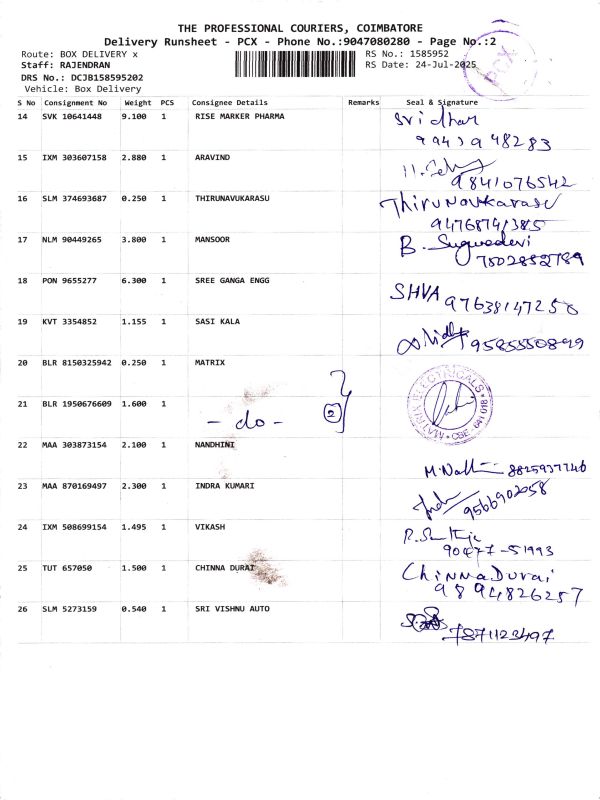 THE PROFESSIONAL COURIERS, COIMBATORE
Delivery Runsheet - PCX - Phone No.:9047080280 - Page No.:2
Route: BOX DELIVERY x RS No.: 1585952
Staff: RAJENDRAN RS Date: 24-Jul-2025
DRS No.: DCJB158595202
Vehicle: Box Delivery
PCX
S No Consignment No Weight PCS Consignee Details Remarks Seal & Signature
14 SVK 10641448 9.100 1 RISE MARKER PHARMA Sridhar
9943948283
15 IXM 303607158 2.880 1 ARAVIND
9841076542
16 SLM 374693687 0.250 1 THIRUNAVUKARASU Thirunavukarasu
17 NLM 90449265 3.800 1 MANSOOR B. Suguadevi
7502852789
18 PON 9655277 6.300 1 SREE GANGA ENGG SHVA 97638147250
19 KVT 3354852 1.155 1 SASI KALA 9585550899
20 BLR 8150325942 0.250 1 MATRIX
21 BLR 1950676609 1.600 1 - do - 2
MATRIX ELECTRICALS * CBE - 641 018 *
22 MAA 303873154 2.100 1 NANDHINI 8825937746
23 MAA 870169497 2.300 1 INDRA KUMARI 9566902058
24 IXM 508699154 1.495 1 VIKASH
90477-51993
25 TUT 657050 1.500 1 CHINNA DURAI Chinna Durai
9894826257
26 SLM 5273159 0.540 1 SRI VISHNU AUTO
7871123497